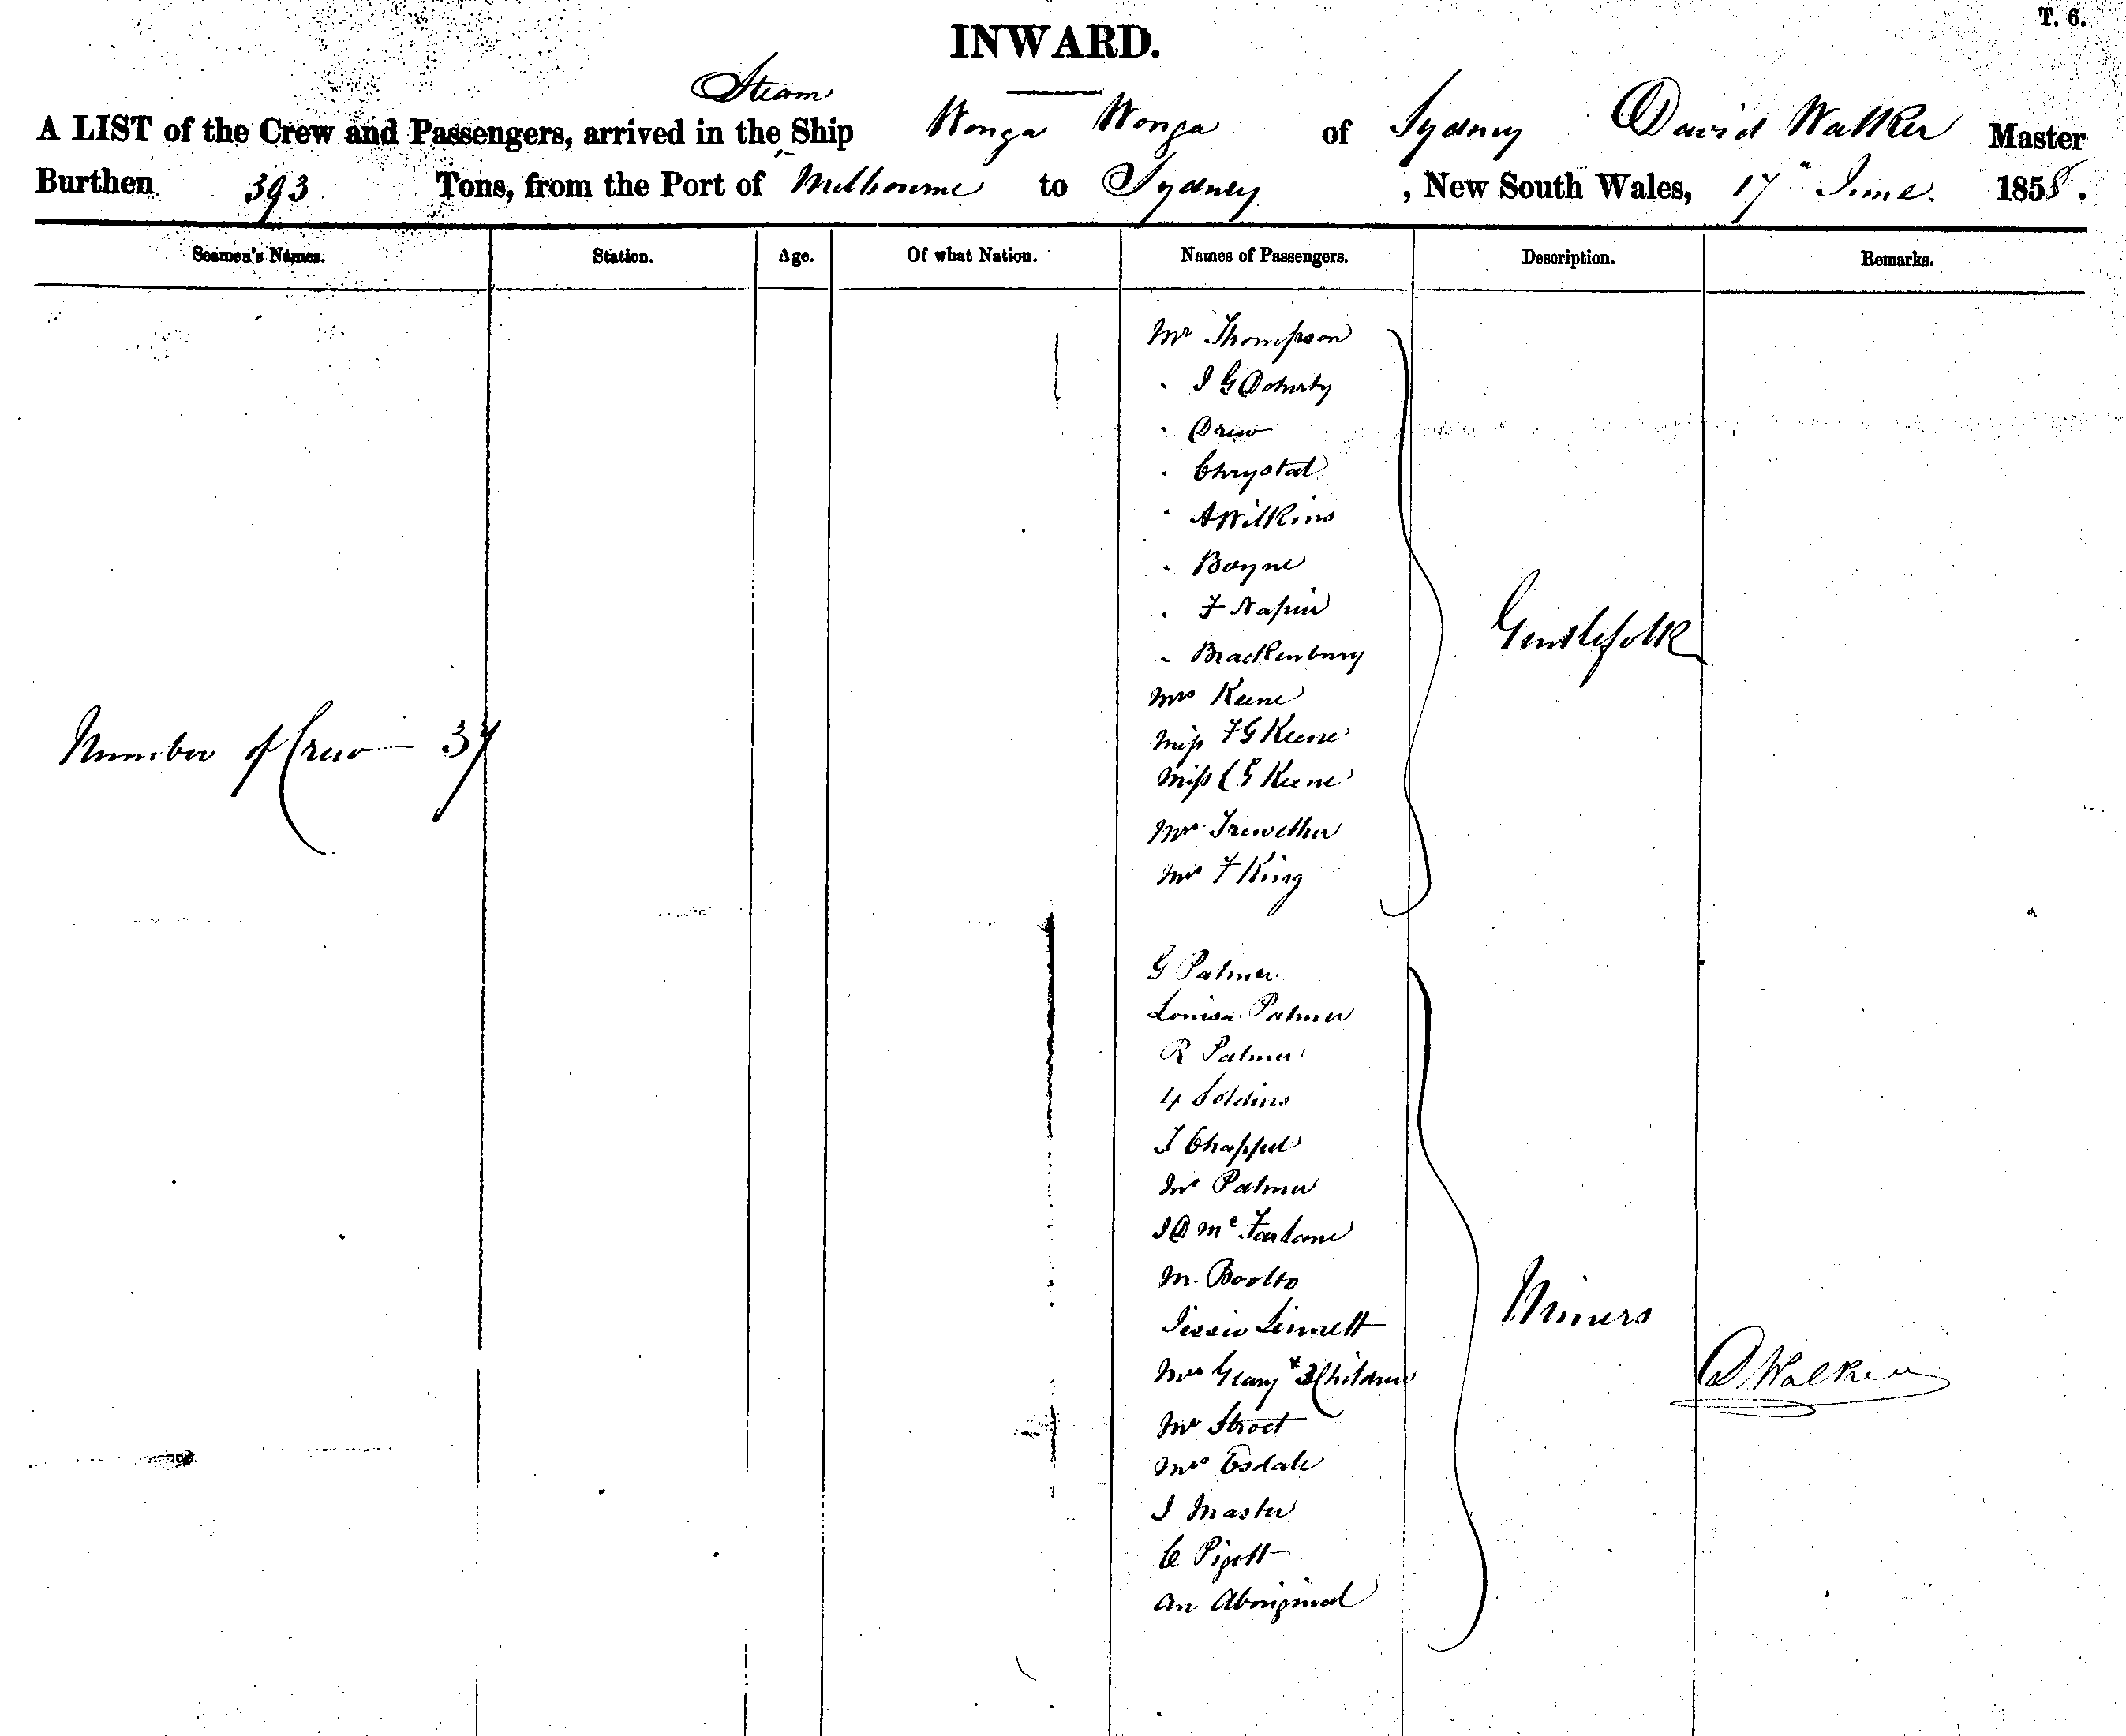 T. 6.
INWARD.
Steam
A LIST of the Crew and Passengers, arrived in the Ship Wonga Wonga of Sydney David Walker Master
Burthen 393 Tons, from the Port of Melbourne to Sydney, New South Wales, 17" June 1858.
Seamen's Names. Station. Age. Of what Nation. Names of Passengers. Description. Remarks.
Mr Thompson
" J G Doherty
" Drew
" Chrystal
" A Wilkins
" Boyne
" F Napier
" Brackenbury
Gentlefolk
Mrs Keene
Miss F G Keene
Number of Crew — 37
Miss C G Keene
Mr Trewether
Mrs F King
G Palmer
Louisa Palmer
R Palmer
4 Soldiers
J Chappel
Mr Palmer
J D McFarlane
M
Jessie Linnett
Miners
Mrs Geary & 3 Children
D Walker
Mr Stroet
Mrs Esdale
J Master
C Pigott
An Aboriginal